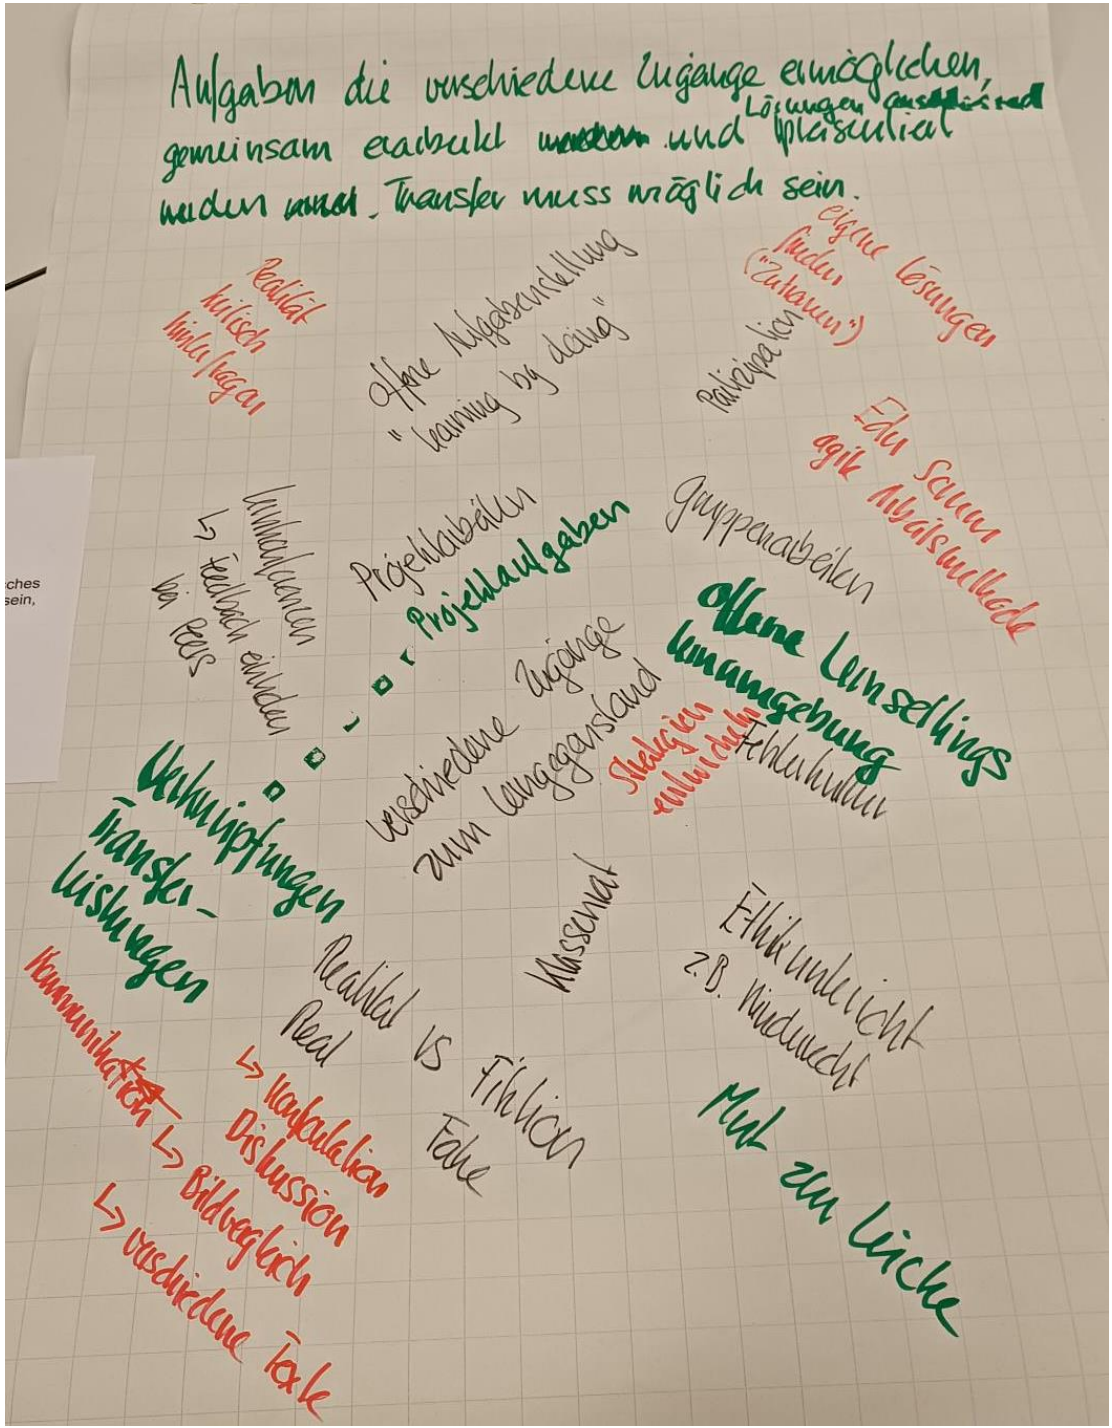 Aufgaben die verschiedene Zugänge ermöglichen,
gemeinsam erarbeitet und Lösungen präsentiert
werden. Transfer muss möglich sein.
Realität
kritisch
hinterfragen
offene Aufgabenstellung
"learning by doing"
eigene Lösungen
finden
("Zutrauen")
Partizipation
Edu Scrum
agile Arbeitsmethode
ches
sein,
Lernkonferenzen
↳ Feedback einholen
bei Peers
Projektarbeiten
Projektaufgaben
Gruppenarbeiten
Offene Lernsettings
Lernumgebung
verschiedene Zugänge
zum Lerngegenstand
Strategien
entwickeln
Fehlerkultur
Verknüpfungen
Transfer-
leistungen
Klassenrat
Ethikunterricht
z.B. Kinderrecht
Realität vs Fiktion
Real
Fake
Kommunikation
↳
Diskussion
↳ Bildvergleich
↳ verschiedene Texte
Mut zur Lücke